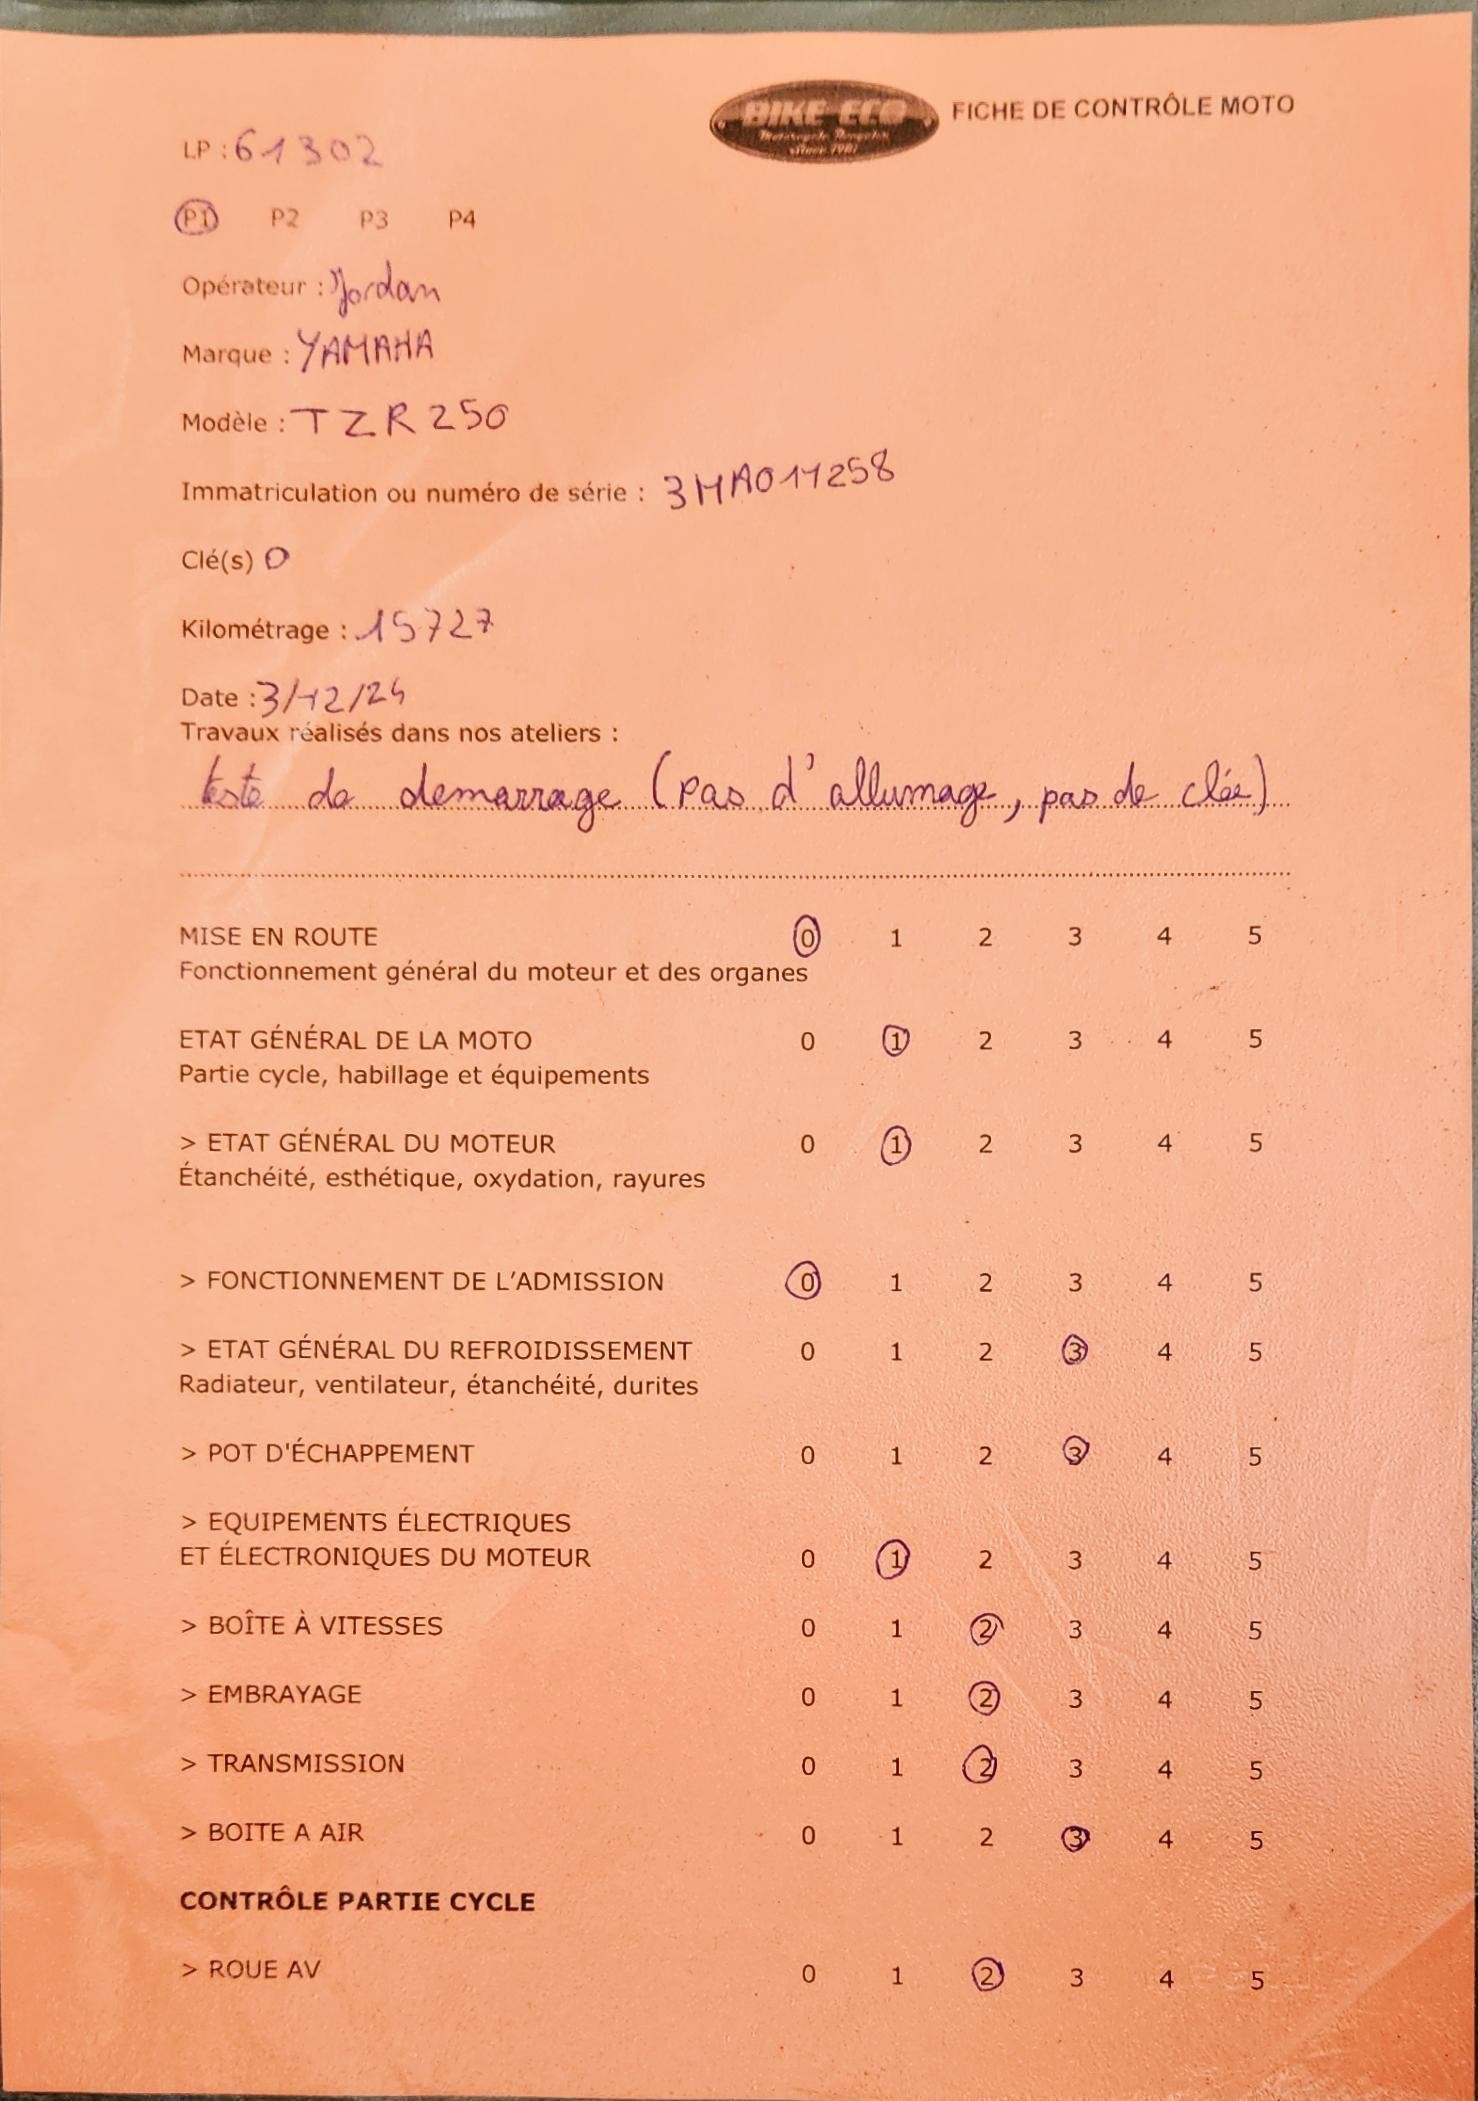 BIKE-ECO
FICHE DE CONTRÔLE MOTO
LP : 61302
P1 P2 P3 P4
Opérateur : Jordan
Marque : YAMAHA
Modèle : TZR 250
Immatriculation ou numéro de série : 3MA011258
Clé(s) 0
Kilométrage : 15727
Date : 3/12/24
Travaux réalisés dans nos ateliers :
teste de demarrage (pas d'allumage, pas de clée)
MISE EN ROUTE 0 1 2 3 4 5
Fonctionnement général du moteur et des organes
ETAT GÉNÉRAL DE LA MOTO 0 1 2 3 4 5
Partie cycle, habillage et équipements
> ETAT GÉNÉRAL DU MOTEUR 0 1 2 3 4 5
Étanchéité, esthétique, oxydation, rayures
> FONCTIONNEMENT DE L'ADMISSION 0 1 2 3 4 5
> ETAT GÉNÉRAL DU REFROIDISSEMENT 0 1 2 3 4 5
Radiateur, ventilateur, étanchéité, durites
> POT D'ÉCHAPPEMENT 0 1 2 3 4 5
> EQUIPEMENTS ÉLECTRIQUES
ET ÉLECTRONIQUES DU MOTEUR 0 1 2 3 4 5
> BOÎTE À VITESSES 0 1 2 3 4 5
> EMBRAYAGE 0 1 2 3 4 5
> TRANSMISSION 0 1 2 3 4 5
> BOITE A AIR 0 1 2 3 4 5
CONTRÔLE PARTIE CYCLE
> ROUE AV 0 1 2 3 4 5